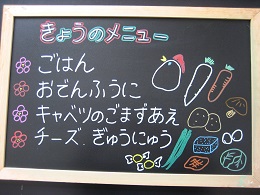 きょうのメニュー
ごはん
おでんふうに
キャベツのごまずあえ
チーズ ぎゅうにゅう